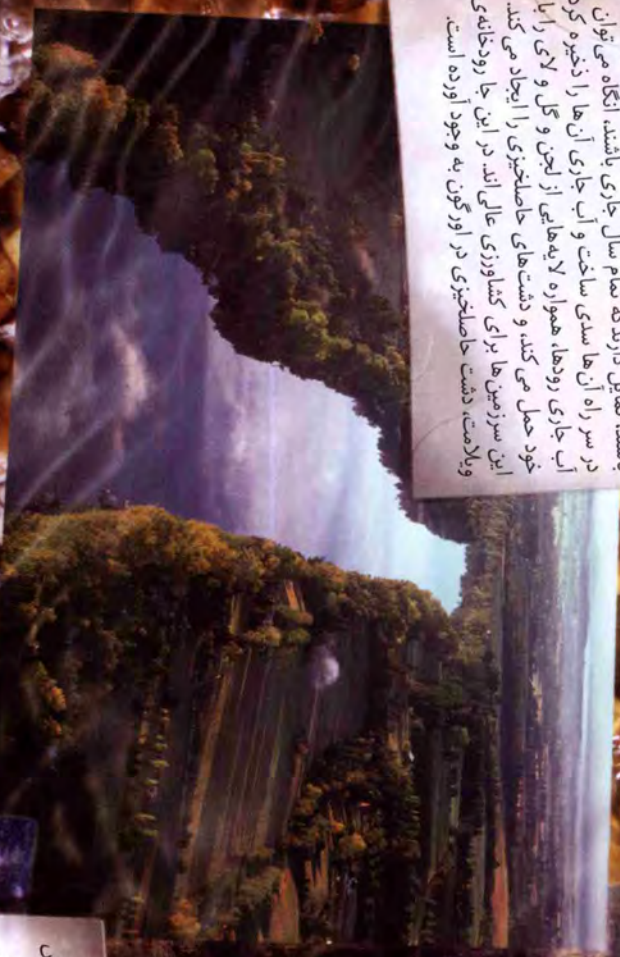 تمایل دارند که تمام سال جاری باشند، آنگاه می توان
در سر راه آن ها سدی ساخت و آب جاری آن ها را ذخیره کرد
آب جاری رودها، همواره لایه‌هایی از لجن و گل و لای را با
خود حمل می کند، و دشت‌های حاصلخیزی را ایجاد می کند.
این سرزمین ها برای کشاورزی عالی‌اند. در این جا رودخانه‌ی
ویلامت، دشت حاصلخیزی در اورگون به وجود آورده است.